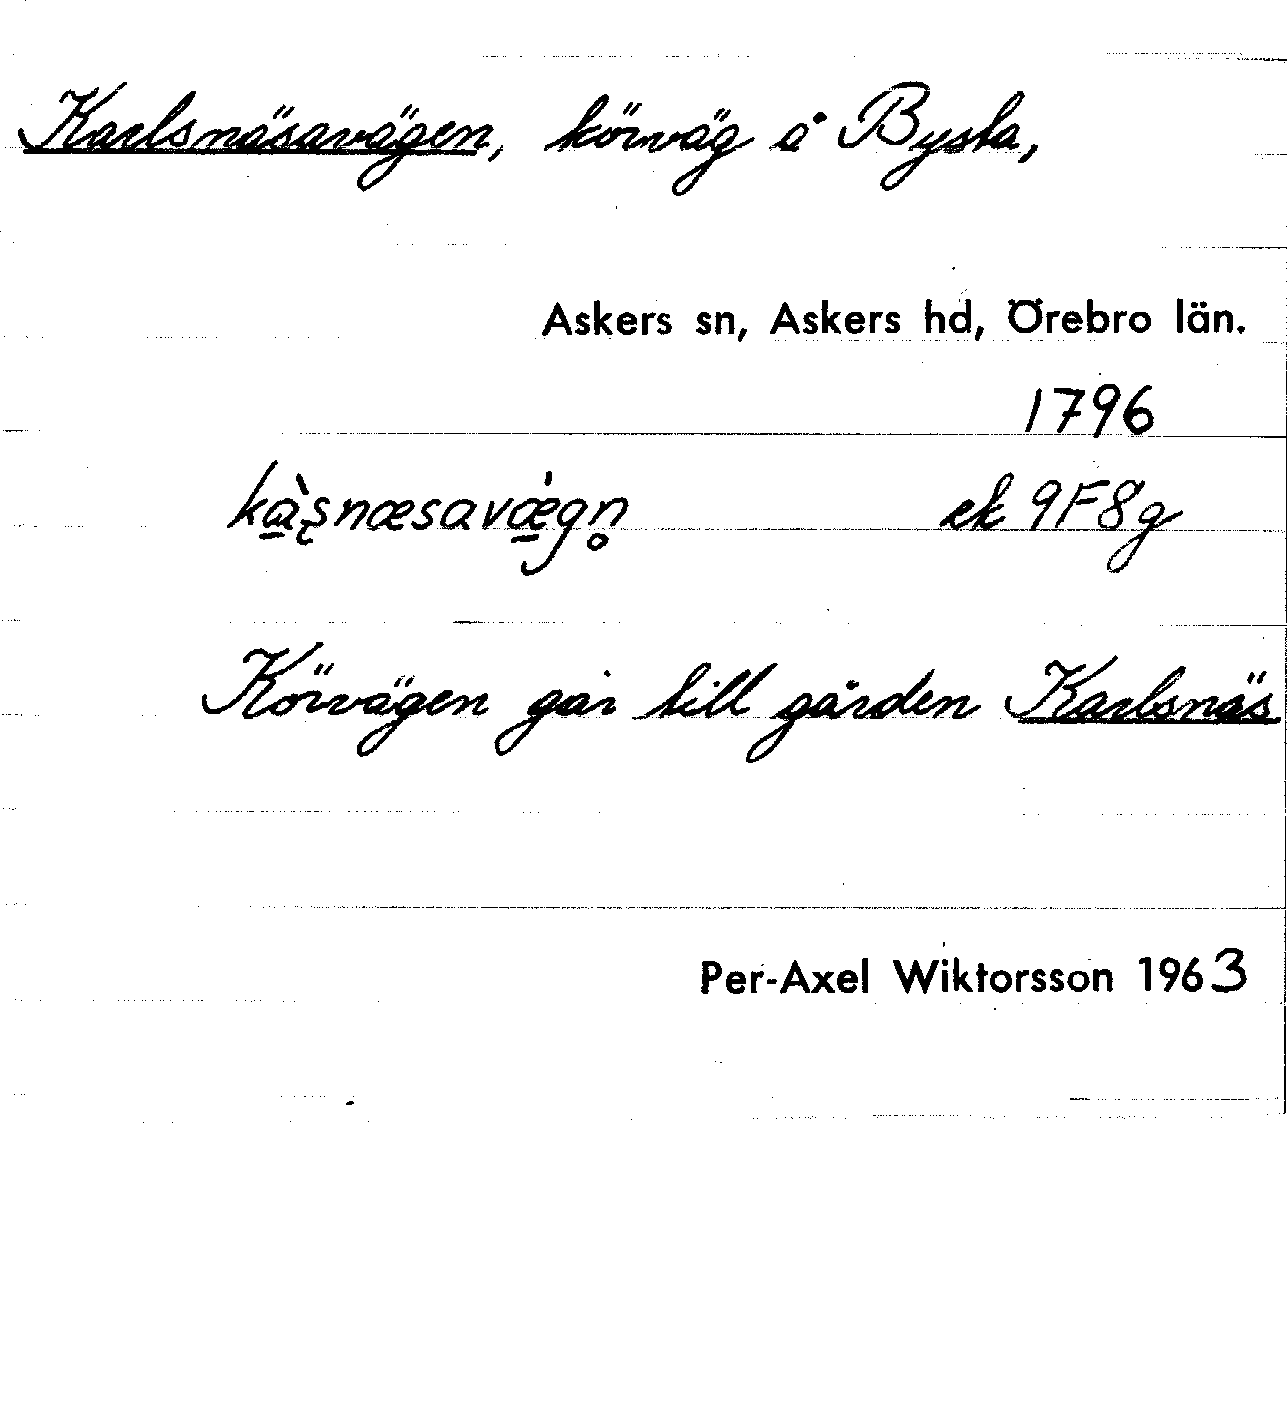 Karlsnäsavägen, körväg å Bysta,
Askers sn, Askers hd, Örebro län.
1796
kа̱̀ʂnæsavǽ̱gn̥ ek 9F8g
Körvägen går till gården Karlsnäs
Per-Axel Wiktorsson 1963